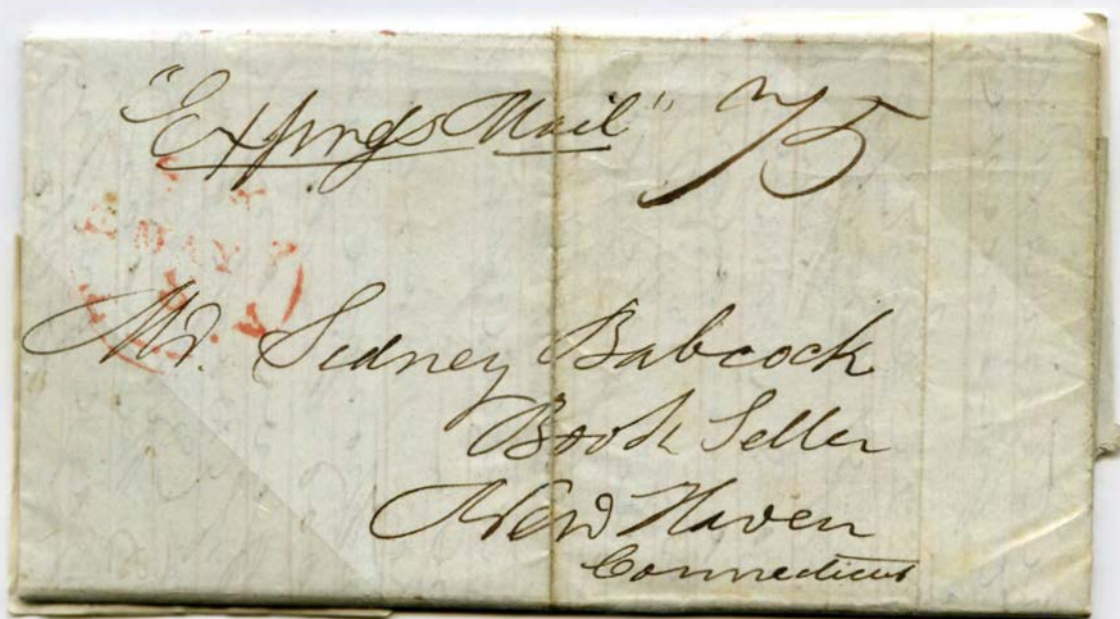 "Express Mail" 75
MAY
Mr. Sidney Babcock
Book Seller
New Haven
Connecticut